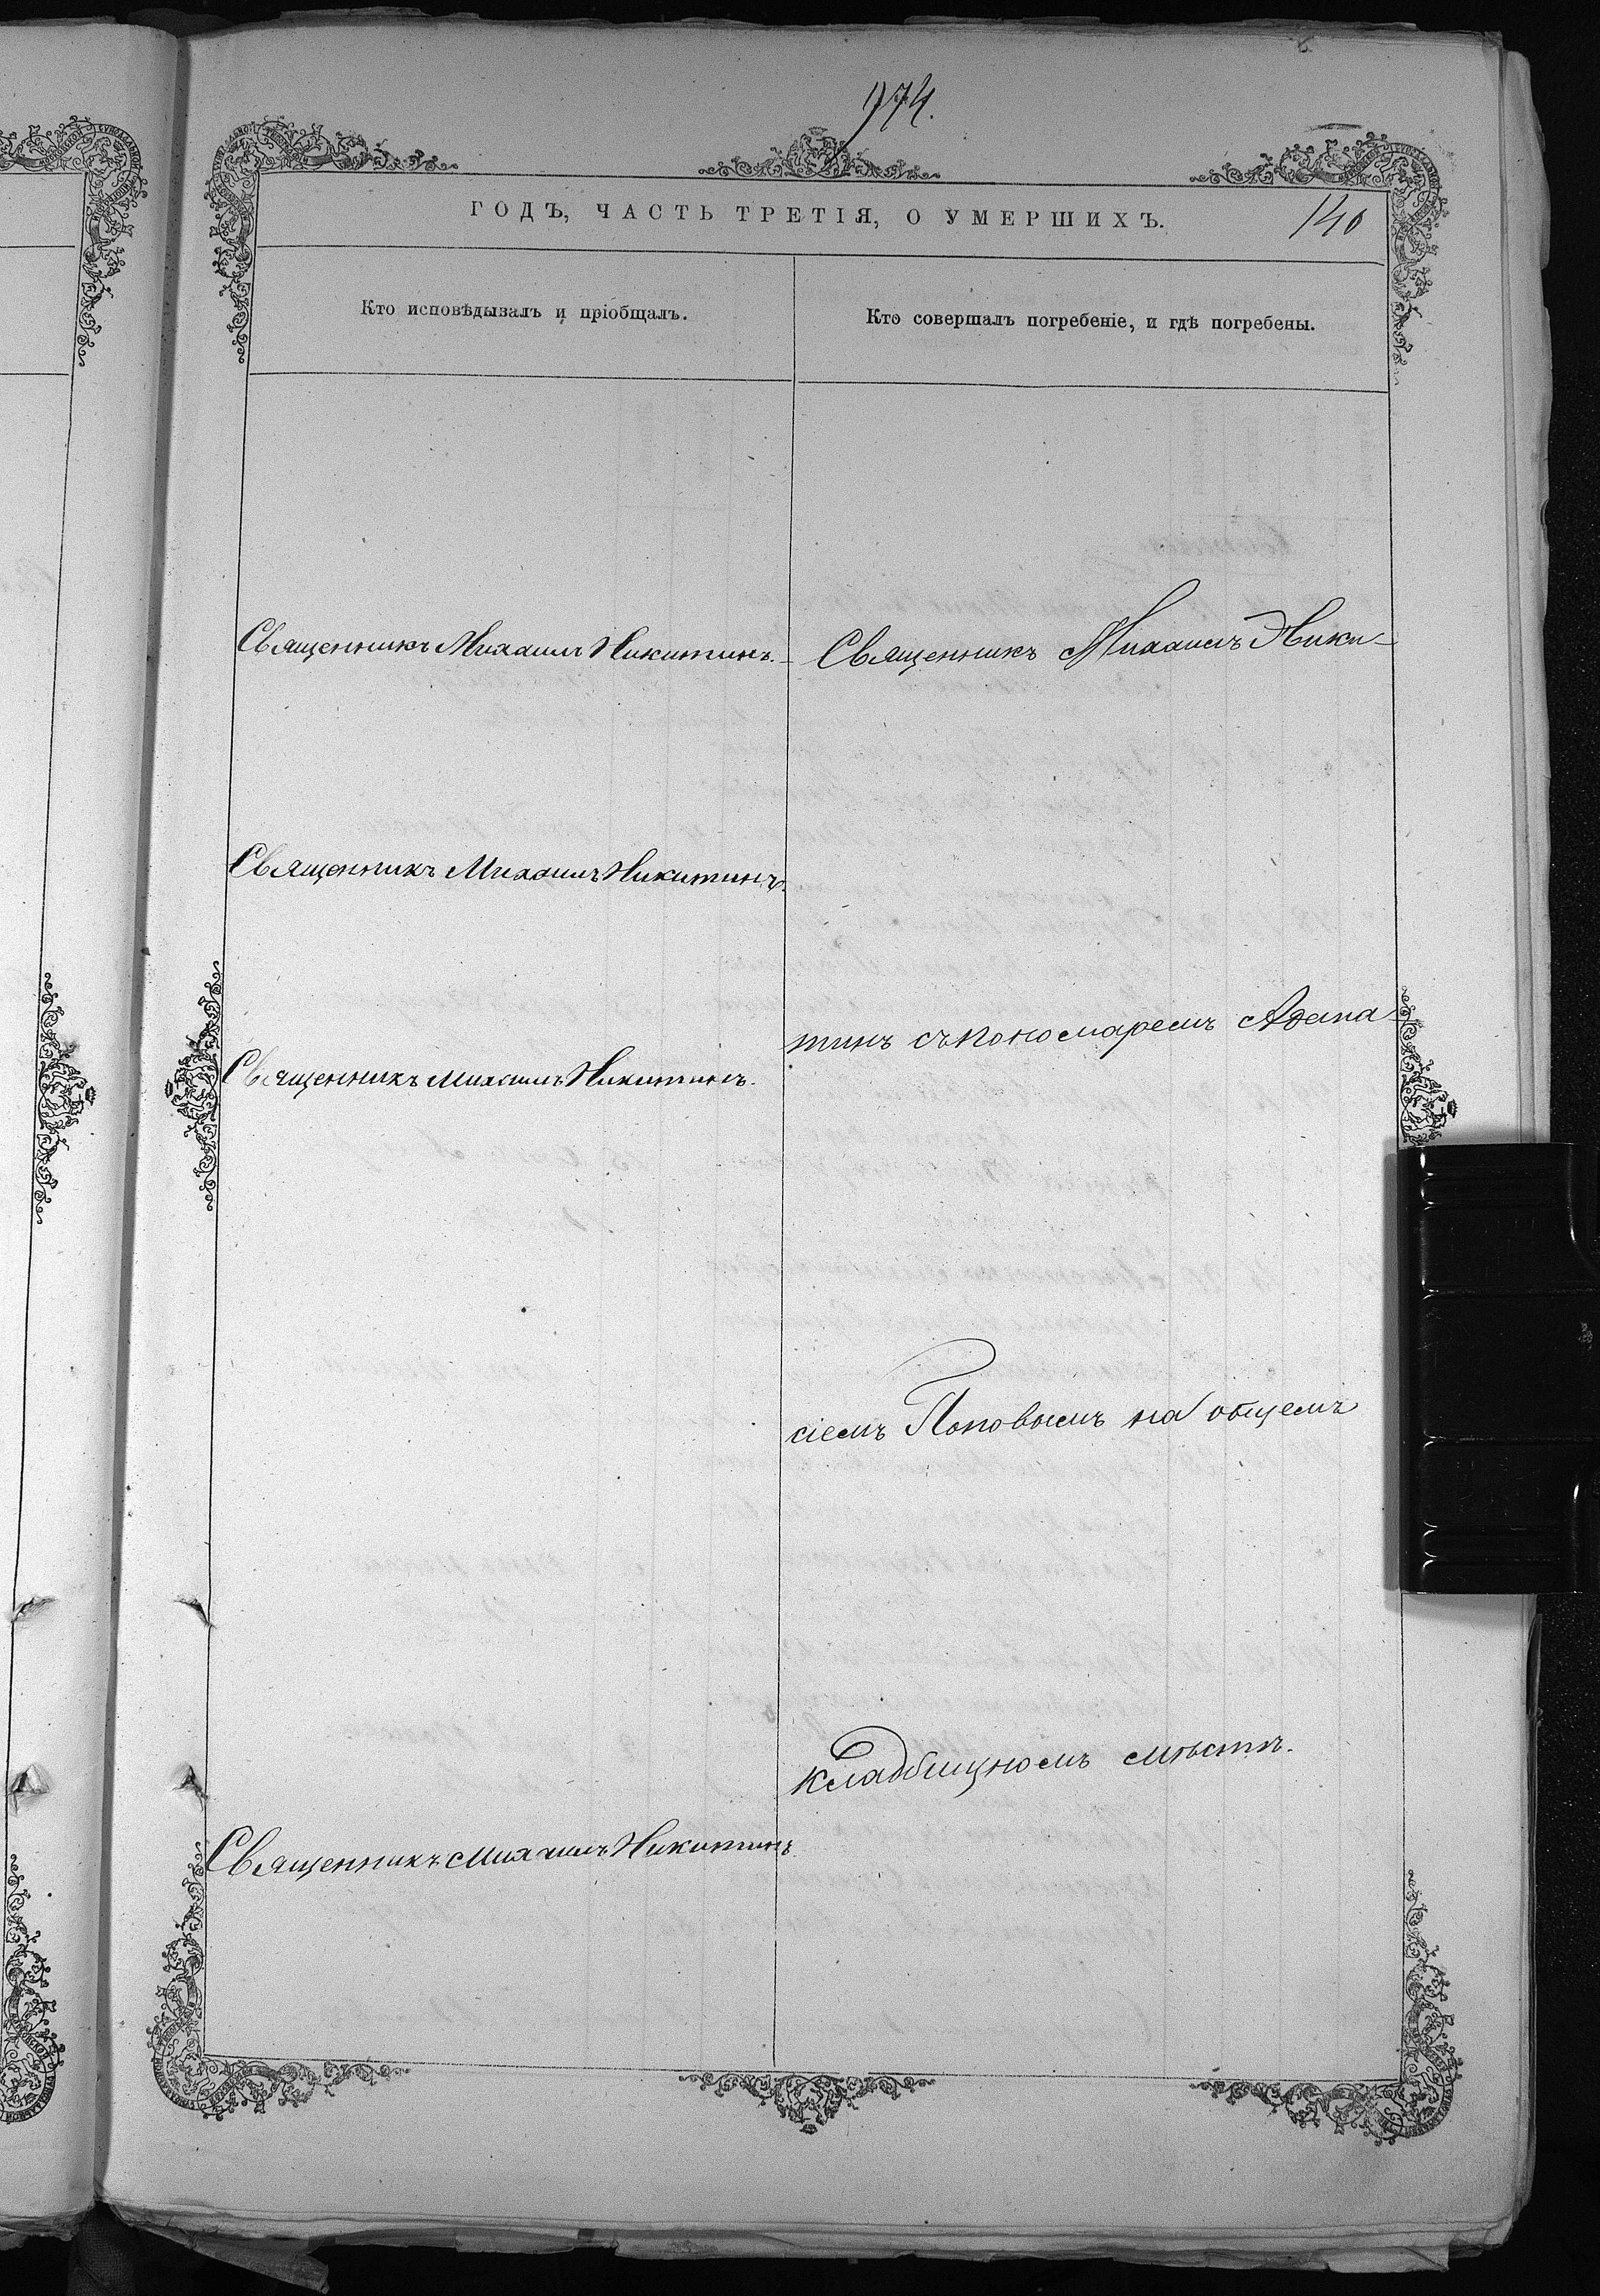 974.
ГОДЪ, ЧАСТЬ ТРЕТІЯ, О УМЕРШИХЪ.
140
Кто исповѣдывалъ и пріобщалъ.
Кто совершалъ погребеніе, и гдѣ погребены.
Священникъ Михаилъ Никитинъ.
Священникъ Михаилъ Ники-
Священникъ Михаилъ Никитинъ.
тинъ съ пономаремъ
Священникъ Михаилъ Никитинъ.
сіемъ Поповымъ на общемъ
кладбищномъ мѣстѣ.
Священникъ Михаилъ Никитинъ